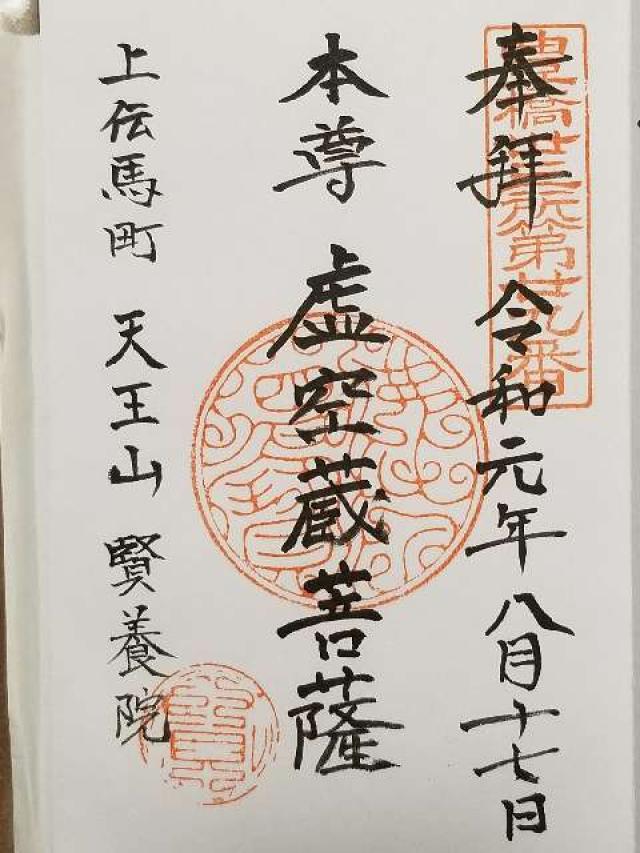 豊橋 第 番
奉拝 令和元年八月十七日
本尊 虚空蔵菩薩
上伝馬町 天王山 賢養院